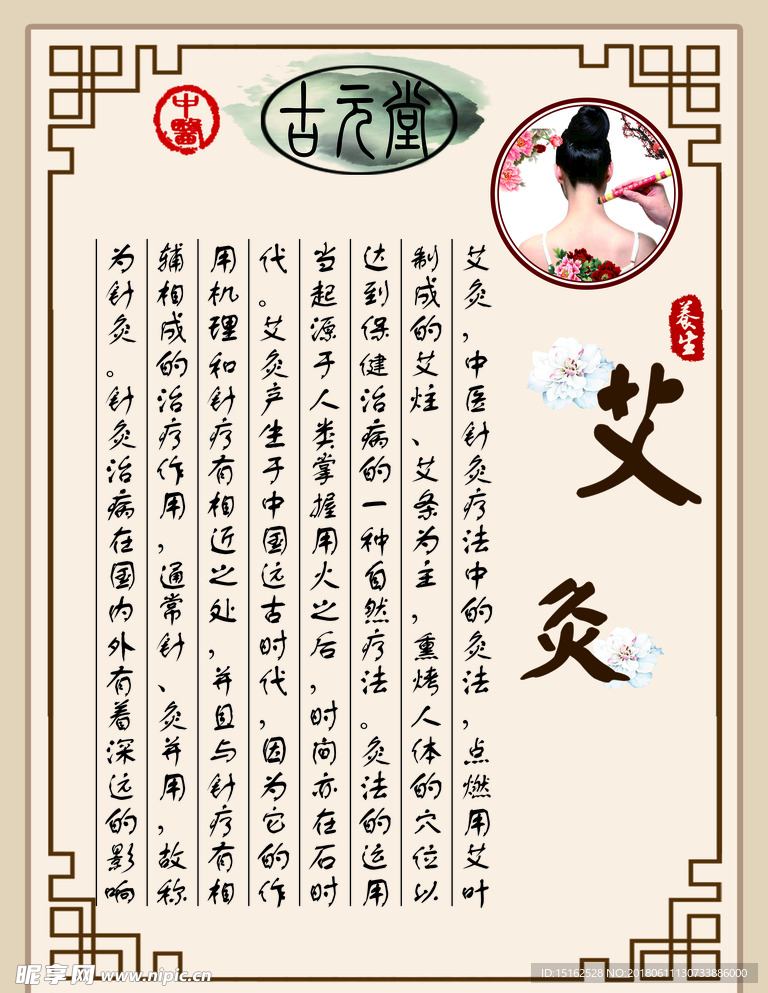 中醫
古元堂
养生
艾灸
艾灸，中医针灸疗法中的灸法，点燃用艾叶
制成的艾炷、艾条为主，熏烤人体的穴位以
达到保健治病的一种自然疗法。灸法的运用
当起源于人类掌握用火之后，时间亦在石时
代。艾灸产生于中国远古时代，因为它的作
用机理和针疗有相近之处，并且与针疗有相
辅相成的治疗作用，通常针、灸并用，故称
为针灸。针灸治病在国内外有着深远的影响
昵享网 www.nipic.cn
ID:15162528 NO:20180611130733886000